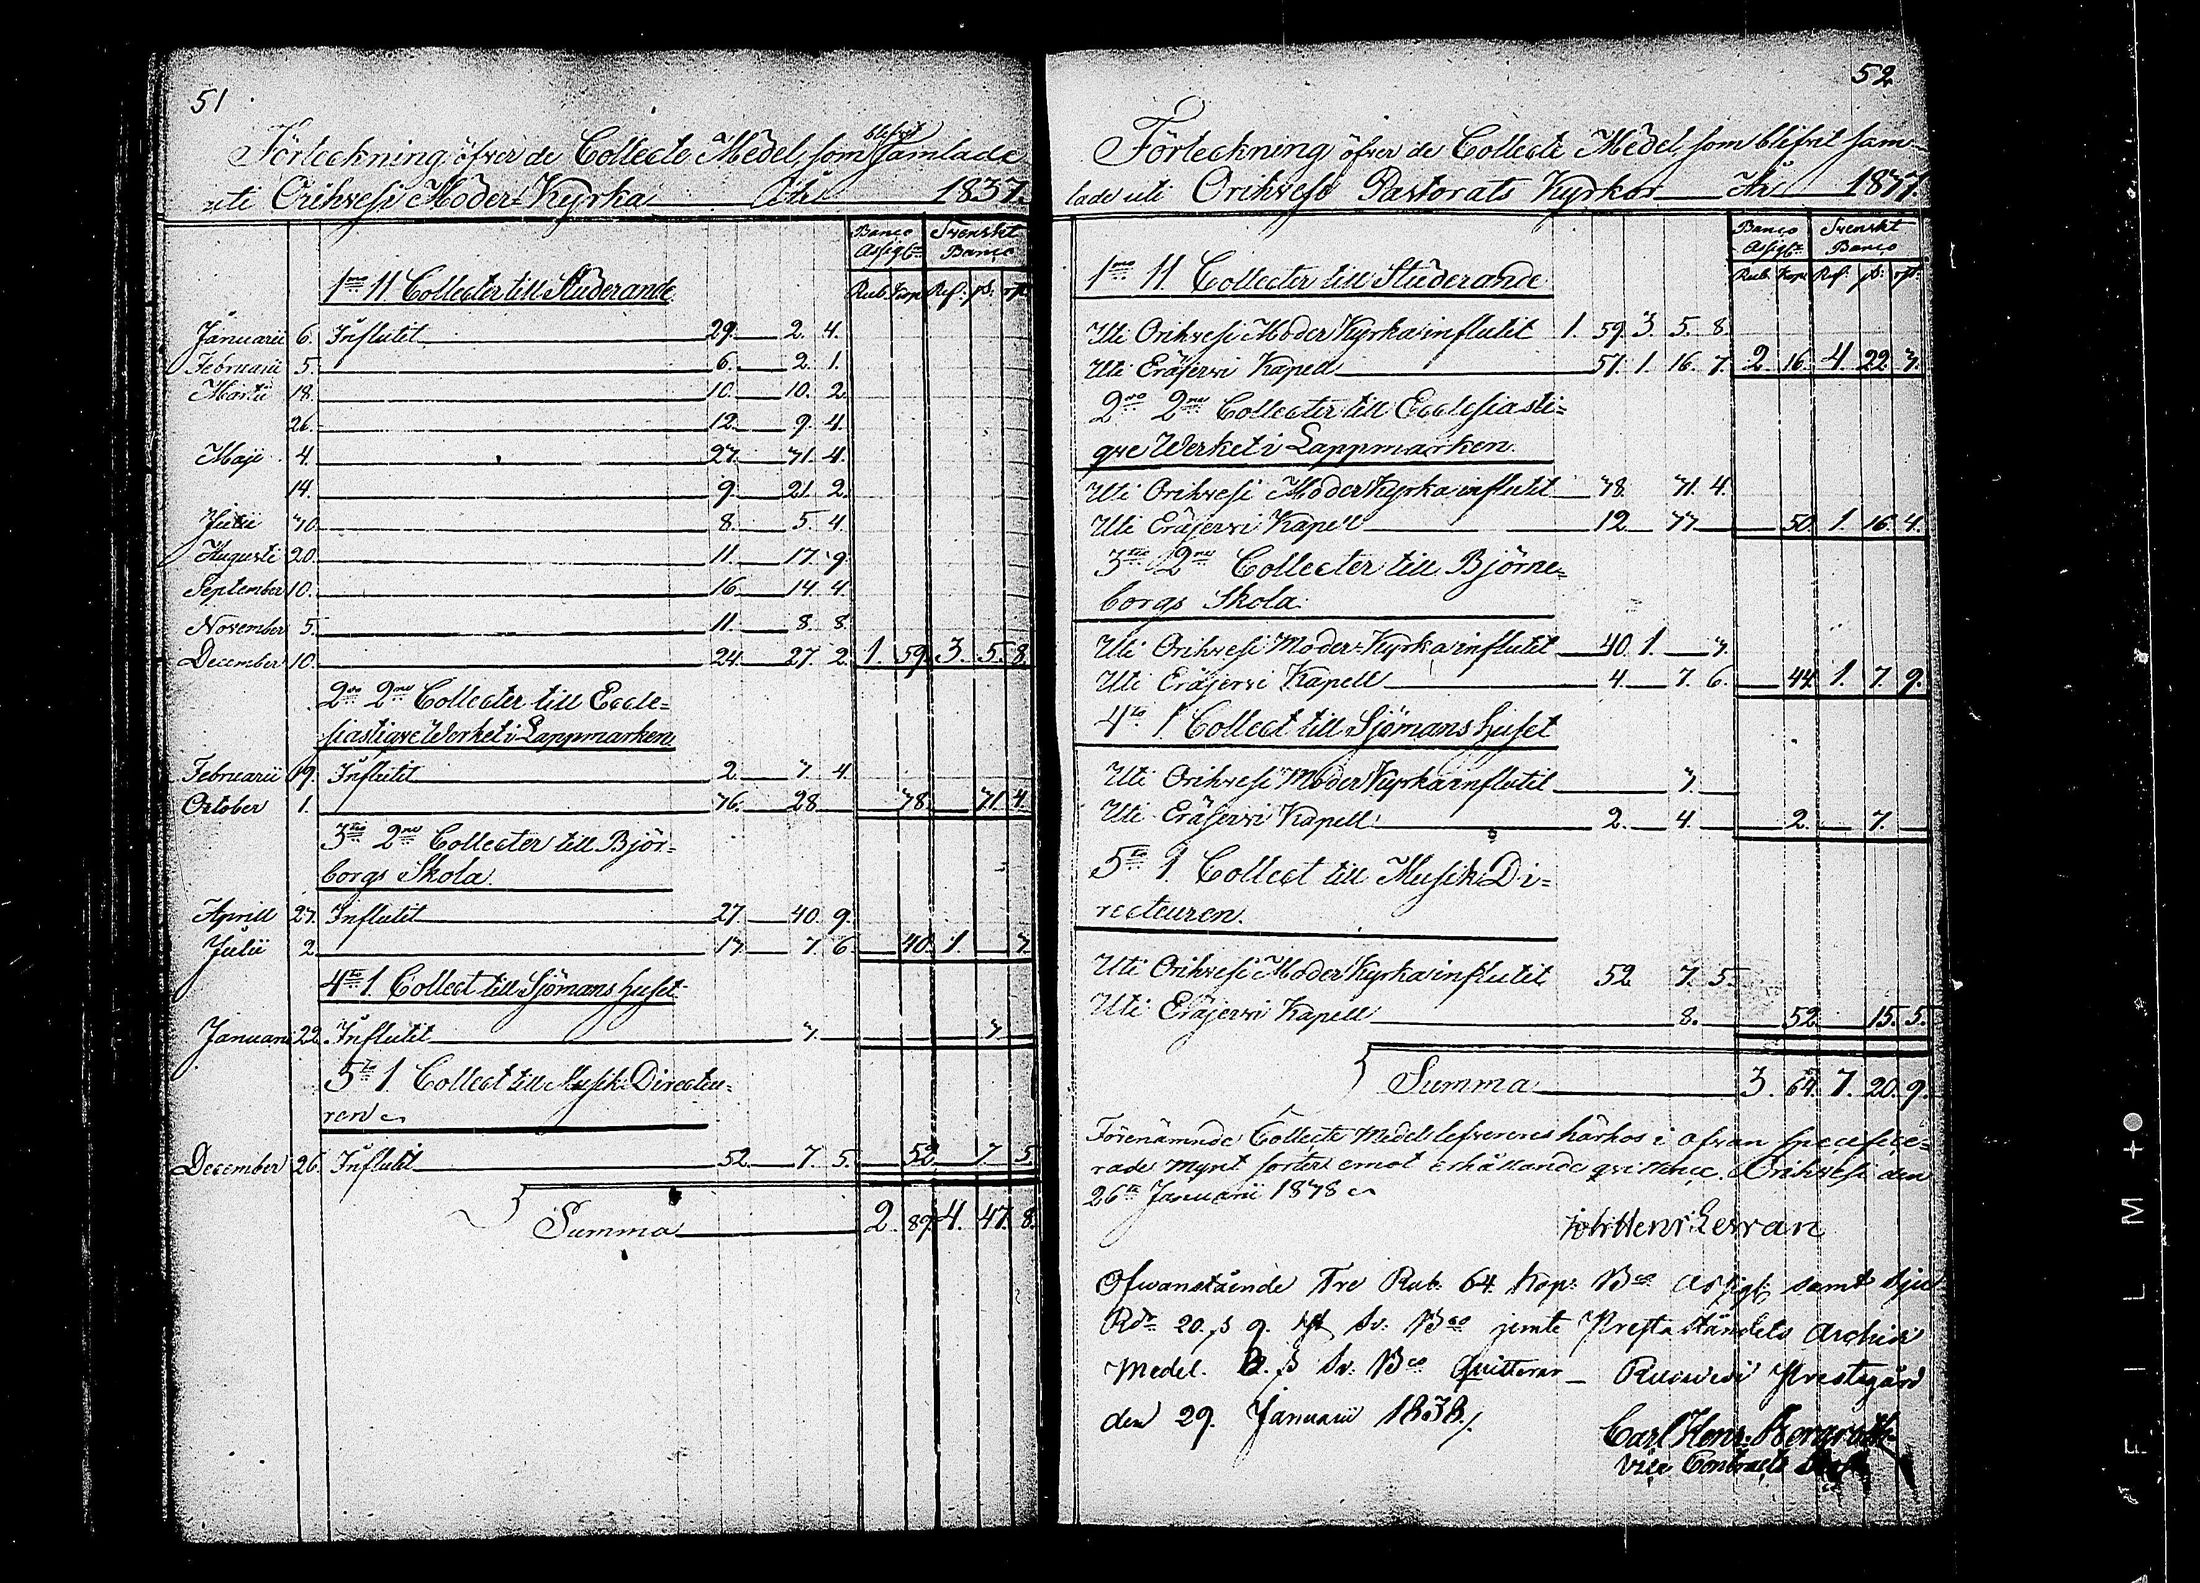 51
Förteckning öfver de Collecte Medel, som blifvit Samlade
uti Orihvesi Moder-Kyrka År 1837.
Banco Assigt: Svenskt Banco
Rub. Kop. Rd: ß: rst
1mo 11 Collecter till Studerande
Januarii 6. Influtit 29. 2. 4.
Februarii 5. 6. 2. 1.
Martii 18. 10. 10. 2
26. 12. 9. 4.
Maji 4. 27. 71. 4.
14. 9. 21. 2.
Julii 70. 8. 5. 4.
Augusti 20. 11. 17. 9.
September 10. 16. 14. 4.
November 5. 11. 8. 8.
December 10. 24. 27. 2. 1. 59. 3. 5. 8.
2do 2ne Collecter till Eccle=
siastiqve Werket i Lappmarken.
Februarii 19. Influtit 2. 7 4.
October 1. 76. 28 78. 71 4.
3tio 2ne Collecter till Björ=
borgs Skola.
Aprill 27. Influtit 27. 40. 9.
Julii 2. 17. 7. 6. 40. 1. 7.
4to 1 Collect till Sjömans huset
Januari 22. Influtit 7. 7
5to 1 Collect till Musik Directeu=
ren
December 26. Influtit 52. 7. 5. 52. 7 5.
Summa 2. 89. 4. 47. 8.
52
Förteckning öfver de Collecte Medel som blifvit Sam-
lade uti Orihvesi Pastorats Kyrkor År 1877.
Banco Assigt: Svenskt Banco
Rub. Kop. Rd: ß: rst:
1mo 11 Collecter till Studerande
Uti Orihvesi Moder Kyrka influtit 1. 59 3. 5. 8.
Uti Eräjerwi Kapell 57. 1. 16. 7. 2. 16. 4. 22. 7.
2do 2ne Collecter till Ecclesiasti=
qve Werket i Lappmarken.
Uti Orihvesi Moder Kyrka influtit 78. 71. 4.
Uti Eräjerwi Kapell 12. 77 50. 1. 16. 4.
3tio 2ne Collecter till Björne=
borgs Skola.
Uti Orihvesi Moder-Kyrka influtit 40. 1. 7.
Uti Eräjerwi Kapell 4. 7. 6. 44. 1. 7. 9.
4to 1 Collect till Sjömans huset
Uti Orihvesi Moder Kyrka influtit 7.
Uti Eräjerwi Kapell 2. 4. 2. 7.
5to 1 Collect till Musik Di=
recteuren.
Uti Orihvesi Moder Kyrka influtit 52 7. 5.
Uti Eräjerwi Kapell 8. 52. 15. 5.
Summa 3. 64. 7. 20. 9.
Förenämnde Collecte Medel lefvereres härhos i ofvan specifice=
rade mynt sorter emot erhållande qvittence. Orihvesi den
26te Januarii 1878
Joh: Henr: Levvan
Ofwanstående Tre Rub. 64. Kop: Bco Assigt: samt sju
Rdr 20. ß 9. rst Sv: Bco jemte Presta ståndets Archivi
Medel. ß Sv: Bco Quitterar Ruovesi Prestegård
den 29. Januarii 1838.
Carl Henr: Bergroth
Vice Contracts
FILM